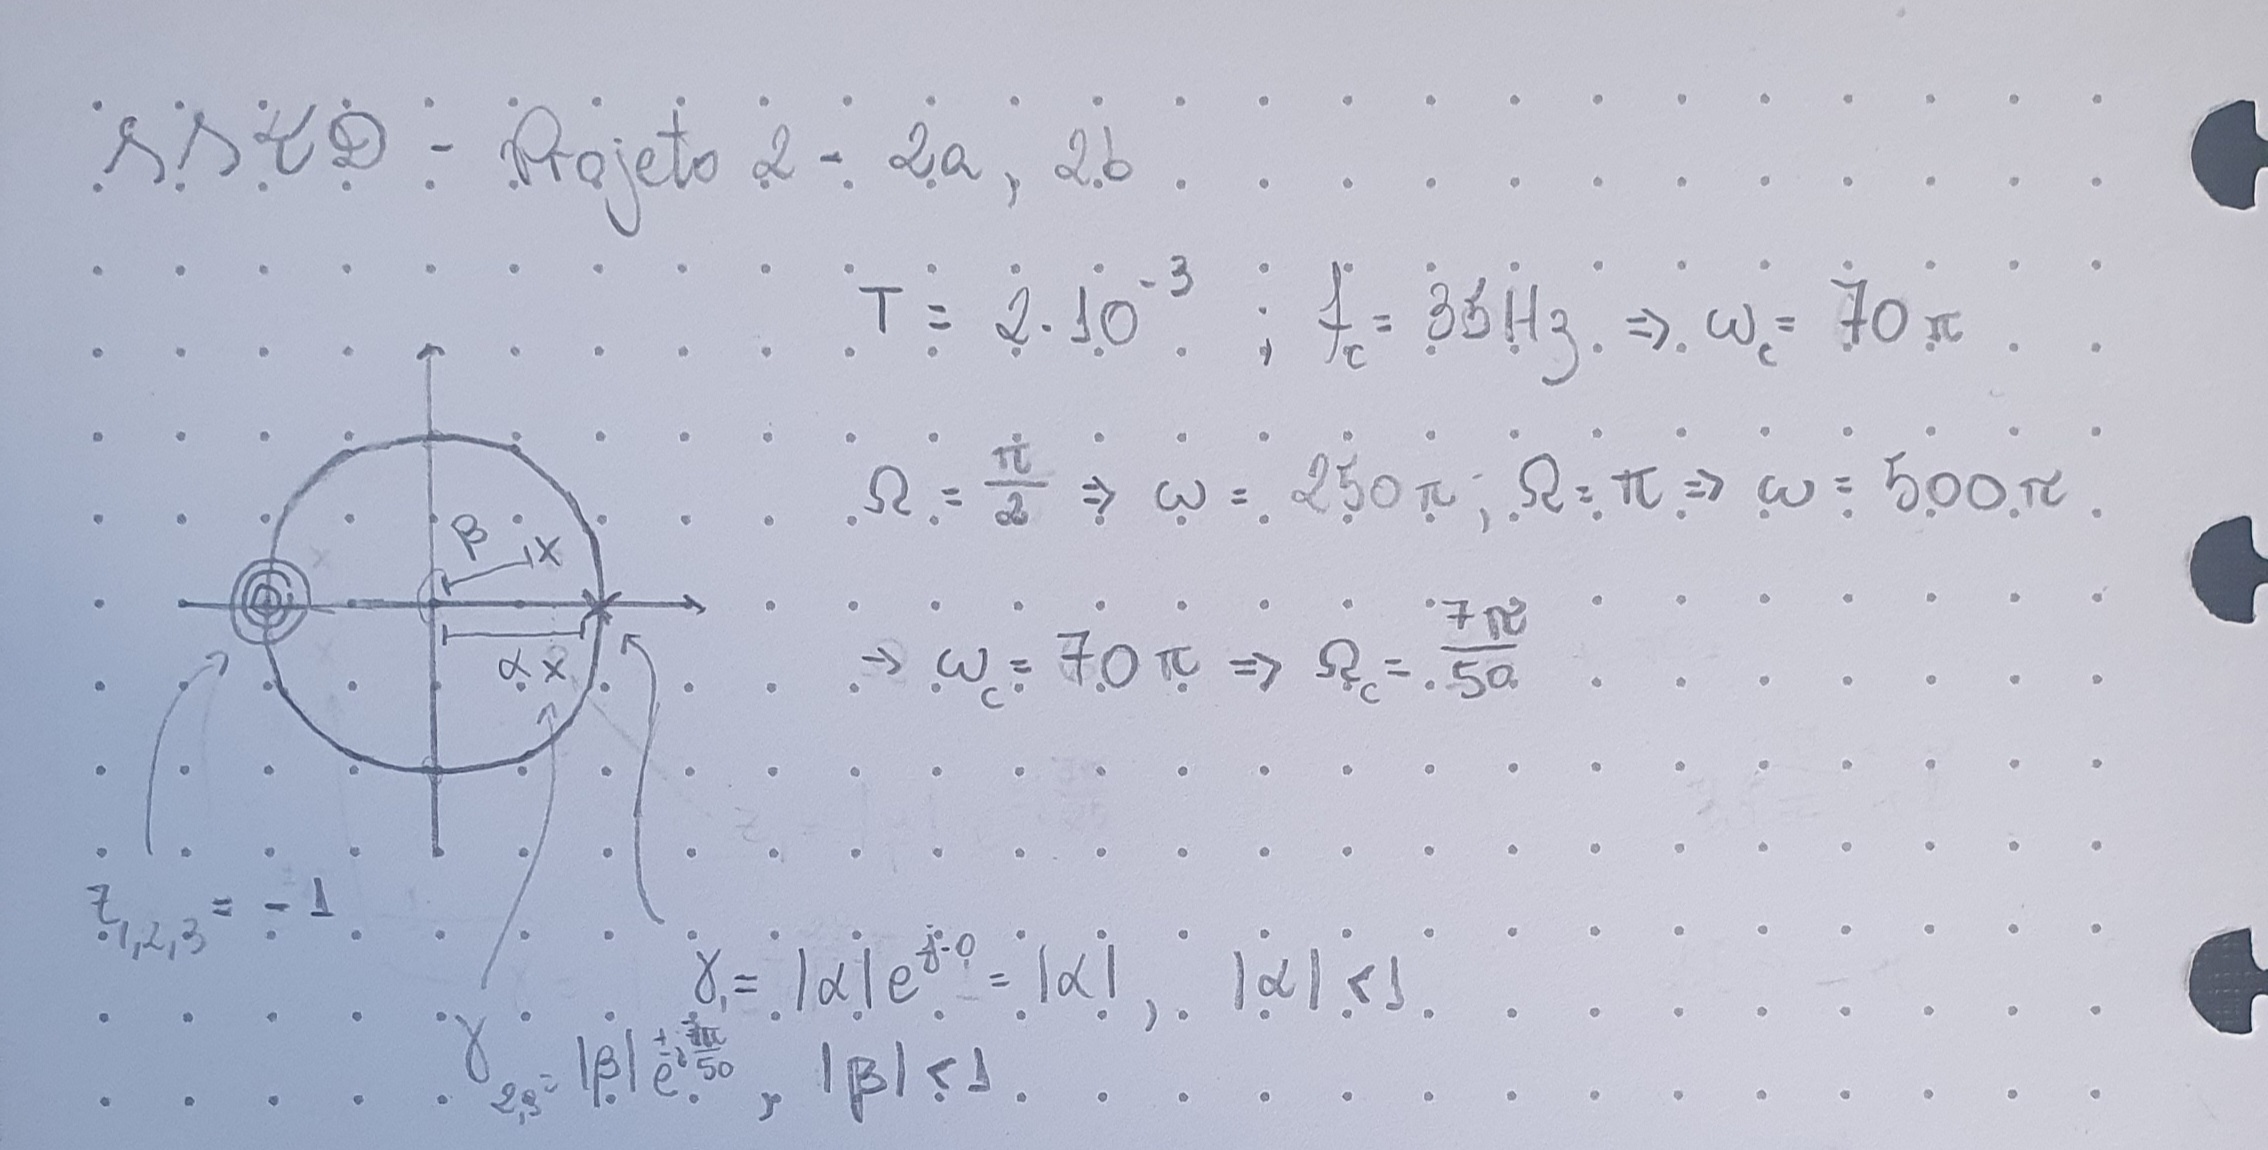 SSLD - Projeto 2 - 2a, 2b
T = 2·10⁻³ ; f_c = 35Hz ⇒ ω_c = 70π
Ω = π/2 ⇒ ω = 250π ; Ω = π ⇒ ω = 500π
→ ω_c = 70π ⇒ Ω_c = 7π/50
β x
α x
z_1,2,3 = -1
γ_1 = |α|e^(j·0) = |α| , |α| < 1
γ_2,3 = |β|e^(±j7π/50) , |β| < 1